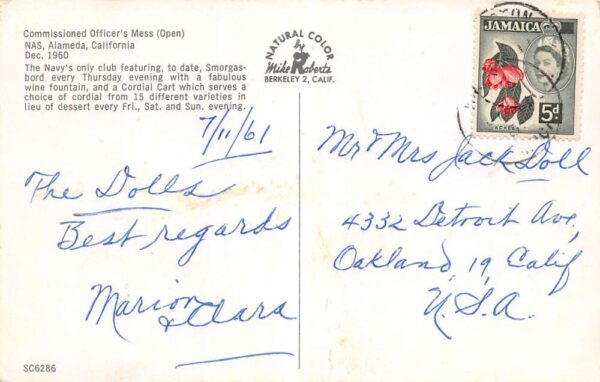 Commissioned Officer's Mess (Open)
NAS, Alameda, California
Dec. 1960
The Navy's only club featuring, to date, Smorgas-
bord every Thursday evening with a fabulous
wine fountain, and a Cordial Cart which serves a
choice of cordial from 15 different varieties in
lieu of dessert every Fri., Sat. and Sun. evening.
NATURAL COLOR
by
Mike Roberts
BERKELEY 2, CALIF.
JAMAICA
5d
ACKEES
7/11/61
The Dolls
Best regards
Marion
& Clara
Mr & Mrs Jack Doll
4332 Detroit Ave,
Oakland, 19, Calif
U.S.A.
SC6286